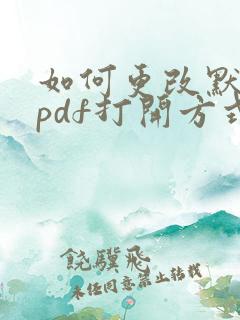 如何更改默
pdf打開方式
饒驥飛
未经同意禁止转载